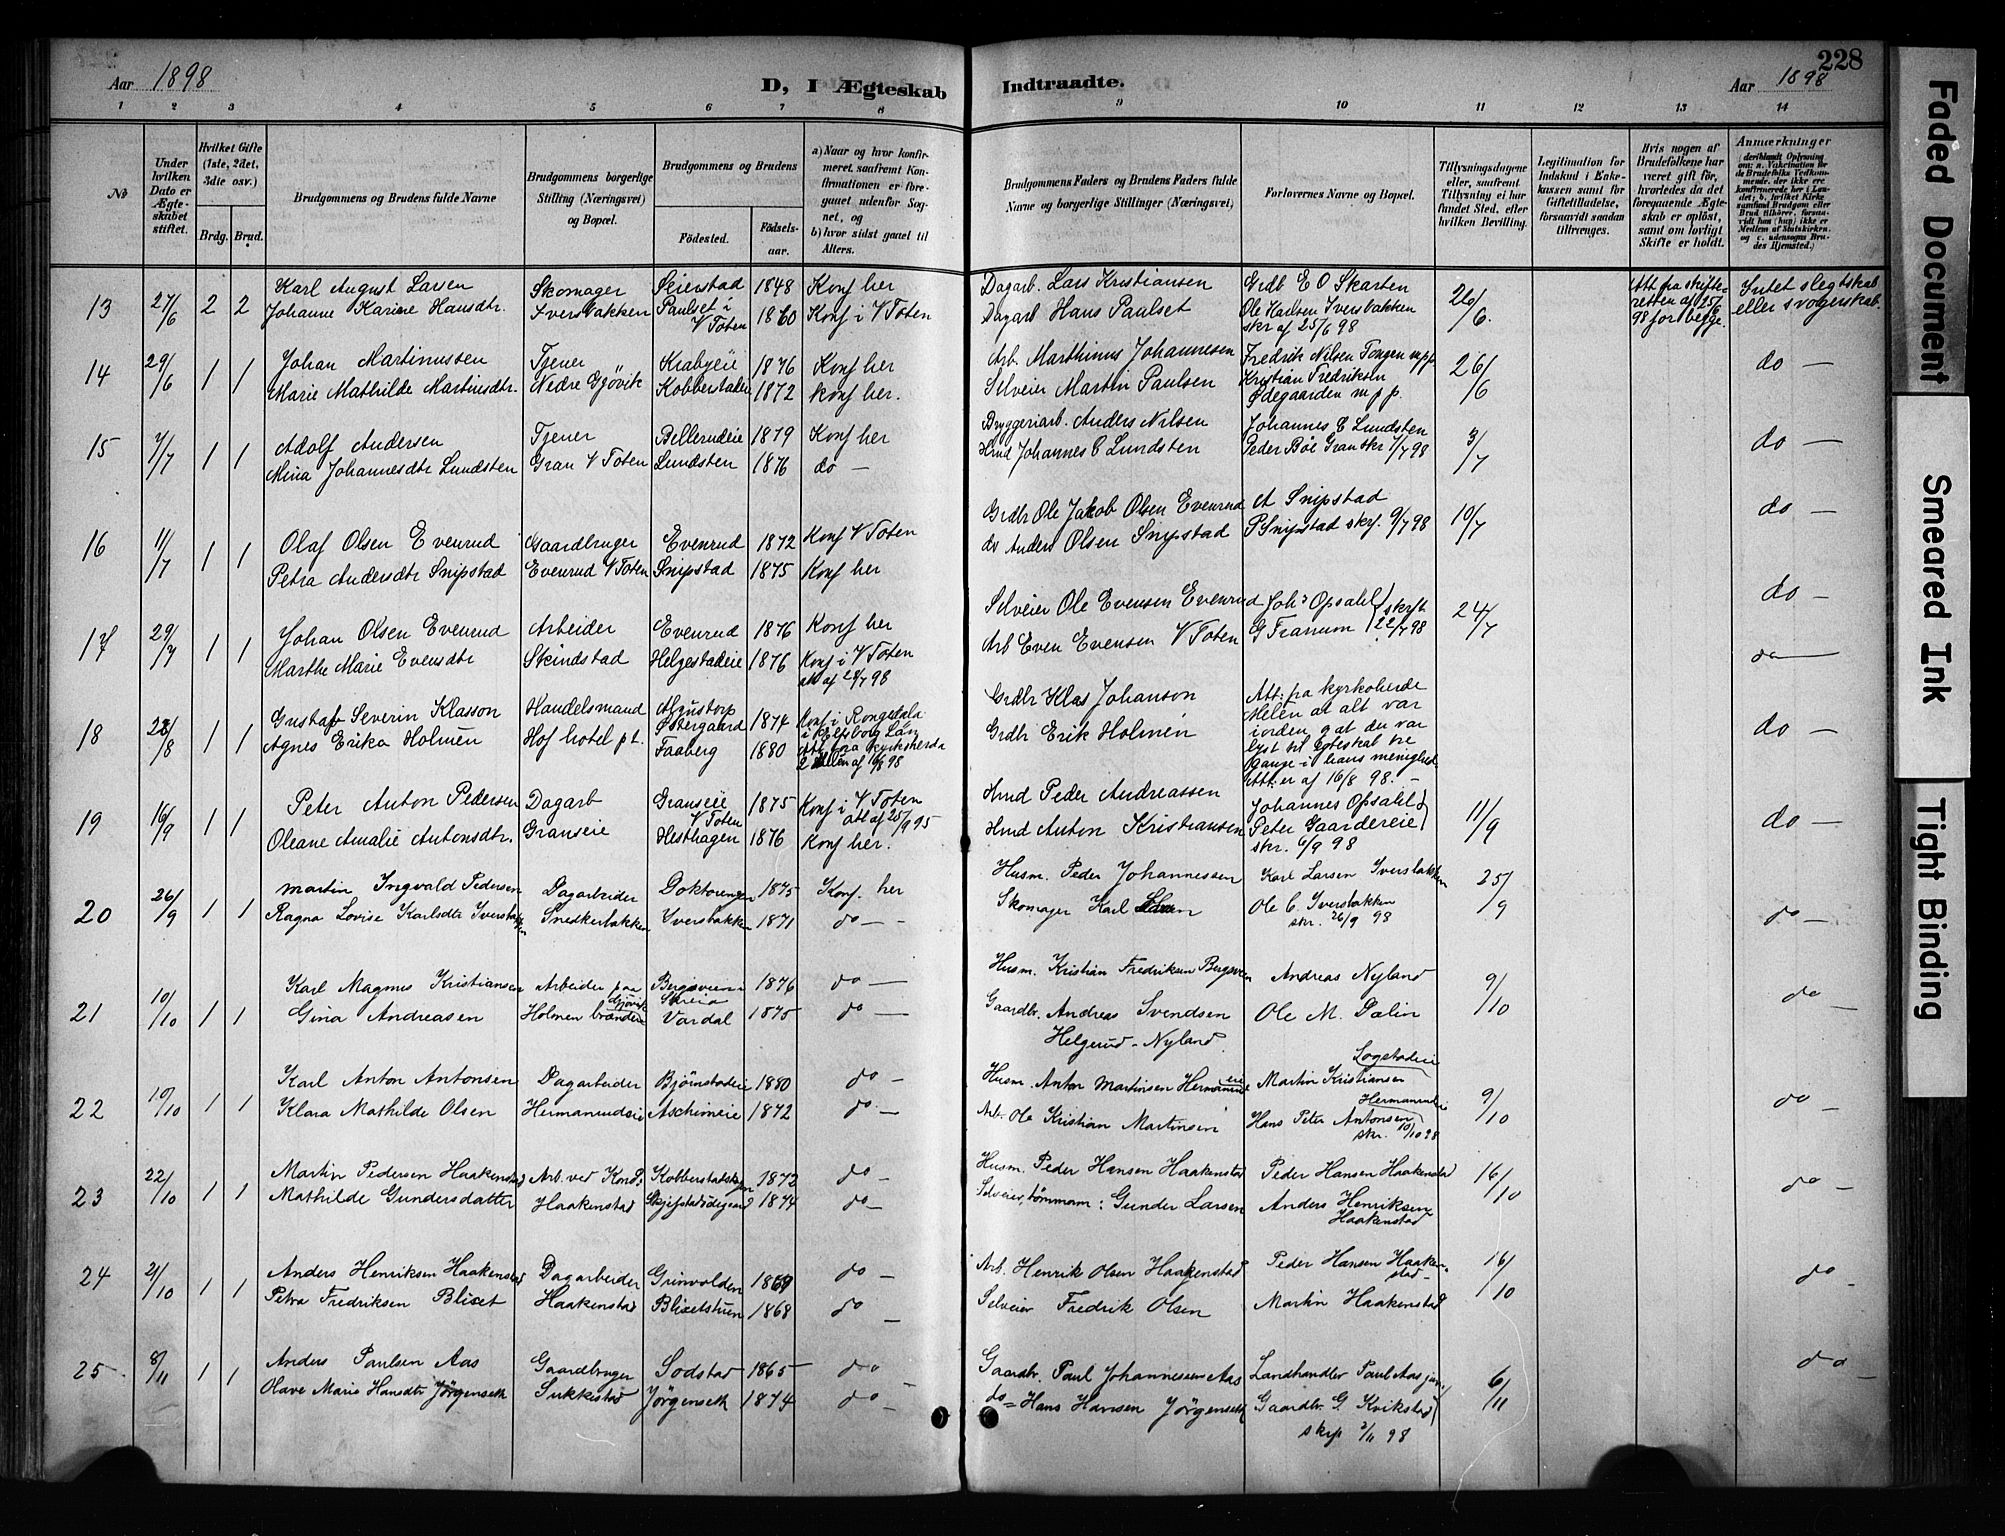 228
Aar 1898
D, I Ægteskab Indtraadte.
Aar 1898
1 2 3 4 5 6 7 8 9 10 11 12 13 14
No
Under hvilken Dato er Ægteskabet stiftet.
Hvilket Gifte (1ste, 2det, 3die osv.)
Brdg. Brud.
Brudgommens og Brudens fulde Navne
Brudgommens borgerlige Stilling (Næringsvei) og Bopæl.
Brudgommens og Brudens
Fødested. Fødselsaar.
a) Naar og hvor konfirmeret, saafremt Konfirmationen er foregaaet udenfor Sognet, og
b) hvor sidst gaaet til Alters.
Brudgommens Faders og Brudens Faders fulde Navne og borgerlige Stillinger (Næringsvei)
Forlovernes Navne og Bopæl.
Tillysningsdagene eller, saafremt Tillysning ei har fundet Sted, efter hvilken Bevilling.
Legitimation for Indskud i Enkekassen samt for Giftetilladelse, forsaavidt saadan tiltrænges.
Hvis nogen af Brudefolkene har været gift før, hvorledes da det foregaaende Ægteskab er opløst, samt om lovligt Skifte er holdt.
Anmærkninger
13 27/6 2 2 Karl August Larsen Skomager Seierstad 1848 Konf her Dagarb. Lars Kristiansen Grdb E O Skarten 26/6. Att fra skifteretten af 25/6 98 for begge. Intet slegtskab eller svogerskab.
Johanne Karine Hansdtr. Iversbakken Paulset i V Toten 1860 Konf i V Toten Dagarb Hans Paulset Ole Iversbakken skr af 25/6 98
14 29/6 1 1 Johan Martinussen Tjener Krabyeie 1876 Konf her Arb. Marthinus Johannesen Fredrik Nilsen Tongen m p p 26/6 do —
Marie Mathilde Martinsdtr. Nedre Gjøvik Kobberstadeie 1872 konf her. Selveier Martin Paulsen Kristian Fredriksen Ødegaarden m p p.
15 1/7 1 1 Adolf Andersen Tjener Bellerudeie 1879 Konf her Bryggeriarb. Anders Nilsen Johannes C Lundsten 3/7 do —
Mina Johannesdtr Lundsten Gran V Toten Lundsten 1876 do — Hmd Johannes C Lundsten Peder Bøe Gran skr 1/7 98
16 11/7 1 1 Olaf Olsen Evenrud Gaardbruger Evenrud 1872 Konf V Toten Grdbr Ole Jakob Olsen Evenrud A Snipstad 10/7 do —
Petra Andersdtr Snipstad Evenrud V Toten Snipstad 1875 Konf her do Anders Olsen Snipstad P Snipstad skr. 9/7 98
17 29/7 1 1 Johan Olsen Evenrud Arbeider Evenrud 1876 Konf her Selveier Ole Evensen Evenrud Johs Opsahl skrft 24/7 do —
Marthe Marie Evensdtr Skindstad Helgestadeie 1876 Konf i V Toten att af 28/7 98 Arb Even Evensen V Toten G Franum 22/7 98 do —
18 28/8 1 1 Gustaf Severin Klasson Handelsmand Østergaard 1874 Konf i Grdbr Klas Johanson Att: fra kyrkoherde Melén at alt var iorden, og at der var lyst til Egteskab tre Gange i hans menighed. Att. er af 16/8 98. — do —
Agnes Erika Holmén Hof hotel p t. Faaberg 1880 Grdbr Erik Holmén
19 16/9 1 1 Peter Anton Pedersen Dagarb Granseie V Toten 1875 Konf i V Toten att af 25/9 95 Hmd Peder Andreassen Johannes Opsahl 11/9 do —
Oleane Amalie Antonsdtr. Granseie Hesthagen 1876 Konf her. Hmd Anton Kristiansen Peter Gaardereie skr. 6/9 98
20 26/9 1 1 Martin Ingvald Pedersen Dagarbeider Doktorengen 1875 Konf. her Husm. Peder Johannessen Karl Larsen Iversbakken 25/9 do —
Ragna Lovise Karlsdtr Iversbakken Snedkerbakken Iversbakken 1871 do — Skomager Karl Ole C. Iversbakken skr. 26/9 98
21 10/10 1 1 Karl Magnus Kristiansen Arbeider paa 1876 do — Husm. Kristian Fredriksen Bergsveen Andreas Nyland 9/10 do —
Gina Andreasen Holmen brænderi Gjøvik Vardal 1875 do — Gaardbr. Andreas Svendsen Helgerud - Nyland Ole M. Dalin
22 10/10 1 1 Karl Anton Antonsen Dagarbeider Bjørnstadeie 1880 do — Husm. Anton Martinsen Hermanrudeie Martin Kristiansen 9/10 do —
Klara Mathilde Olsen Hermanrudeie Aschimeie 1872 do — Arb. Ole Kristian Martinsen Hans Peter Antonsen Hermanrudeie skr. 10/10 98
23 22/10 1 1 Martin Pedersen Haakenstad Arb. ved Kobberstadskogen 1872 do — Husm. Peder Hansen Haakenstad Peder Hansen Haakenstad 16/10 do —
Mathilde Gundersdatter Haakenstad 1874 do — Selveier, tømmerm: Gunder Larsen Anders Henriksen Haakenstad
24 21/10 1 1 Anders Henriksen Haakenstad Dagarbeider Grinvolden 1869 do — Arb. Henrik Olsen Haakenstad Peder Hansen Haakenstad 16/10 do —
Petra Fredriksen Blixet Haakenstad Blixetstuen 1868 do — Selveier Fredrik Olsen Martin Haakenstad
25 8/11 1 1 Anders Paulsen Aas Gaardbruger Sodstad 1865 do Gaardbr. Paul Johannessen Aas Landhandler Paul Aas jun. 6/11 do —
Olave Marie Hansdtr Jørgenseth Sukkestad Jørgenseth 1874 do — do Hans Hansen Jørgenseth Gaardbr. G. Kvikstad skr. 2/11 98
Faded Document
Smeared Ink
Tight Binding